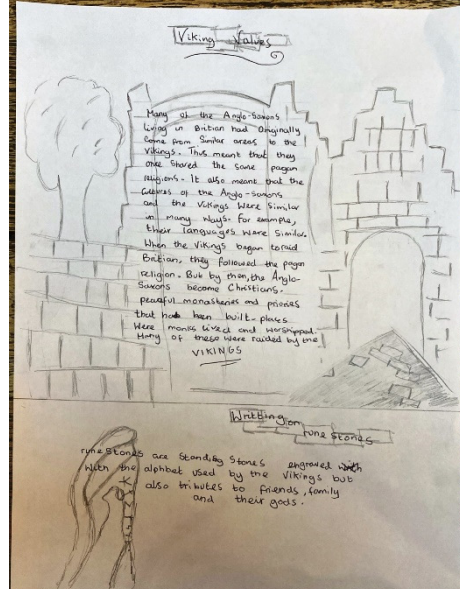 Viking Values
Many of the Anglo-Saxons
living in Britian had Originally
come from Similar areas to the
Vikings. This meant that they
once Shared the same pagan
religions. It also meant that the
Cultures of the Anglo-Saxons
and the Vikings were Similar
in many ways. For example,
their languages were Similar.
When the Vikings began to raid
Britian, they followed the pagan
religion. But by then, the Anglo-
Saxons become Christians.
peaceful monasteries and priories
that had been built-places
Were monks lived and worshipped.
Many of these were raided by the
VIKINGS
Writting on
rune Stones
rune Stones are Standing Stones engraved with
With the alphbet used by the Vikings but
also tributes to friends, family
and their gods.